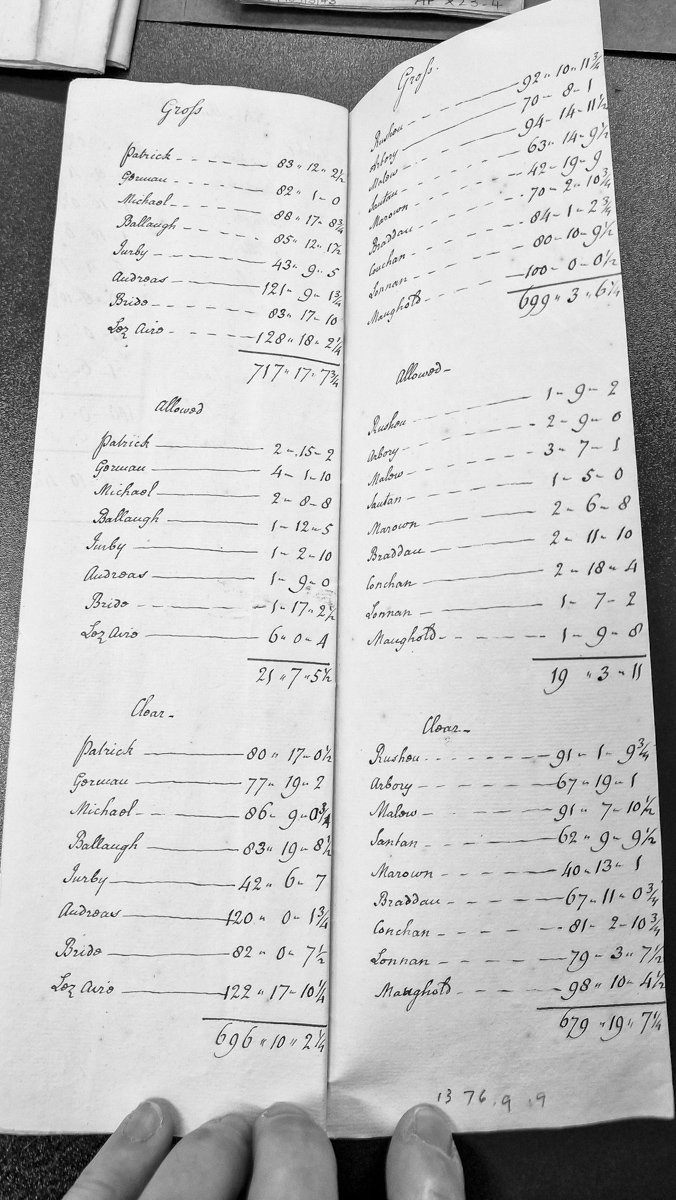 AP X23-4
Gross
Patrick - - - 83 " 12 " 2½
German - - - 82 " 1 - 0
Michael - - - 88 " 17 - 8¾
Ballaugh - - - 85 " 12 " 1½
Jurby - - - 43 " 9 " 5
Andreas - - - 121 " 9 - 1¾
Bride - - - 83 " 17 - 10
Lez Aire - - - 128 " 18 " 2¼
717 " 17 " 7¾
Allowed
Patrick — 2 - 15 - 2
German — 4 - 1 - 10
Michael — 2 - 8 - 8
Ballaugh — 1 - 12 - 5
Jurby — 1 - 2 - 10
Andreas — 1 - 9 - 0
Bride - - - 1 - 17 " 2½
Lez Aire — 6 " 0 - 4
21 " 7 " 5½
Clear -
Patrick — 80 " 17 - 0½
German — 77 " 19 - 2
Michael — 86 - 9 - 0¾
Ballaugh — 83 " 19 - 8½
Jurby — 42 " 6 - 7
Andreas — 120 " 0 - 1¾
Bride — 82 " 0 " 7½
Lez Aire — 122 " 17 - 10¼
696 " 10 " 2¼
Gross -
Rushen - - - 92 " 10 " 11¾
Arbory — 70 - 8 - 1
Malew - - - 94 - 14 - 11½
Santan - - - 63 " 14 - 9½
Marown - - - 42 - 19 - 9
Braddan - - - 70 - 2 - 10¾
Conchan - - - 84 - 1 - 2¾
Lonnan - - - 80 - 10 - 9½
Maughold - - - 100 - 0 - 0½
699 " 3 " 6¼
Allowed -
Rushen — 1 - 9 - 2
Arbory - - - 2 - 9 - 0
Malew - - - 3 " 7 - 1
Santan - - - 1 - 5 - 0
Marown — 2 - 6 - 8
Braddan — 2 - 11 - 10
Conchan — 2 - 18 - 4
Lonnan — 1 - 7 - 2
Maughold - - - 1 - 9 - 8
19 " 3 - 11
Clear -
Rushen - - - 91 - 1 - 9¾
Arbory - - - 67 - 19 - 1
Malew - - - 91 " 7 - 10½
Santan - - - 62 " 9 - 9½
Marown - - - 40 - 13 - 1
Braddan - - - 67 - 11 - 0¾
Conchan - - - 81 - 2 - 10¾
Lonnan - - - 79 - 3 " 7½
Maughold - - - 98 " 10 - 4½
679 " 19 " 7¼
1376 . 9 . 9